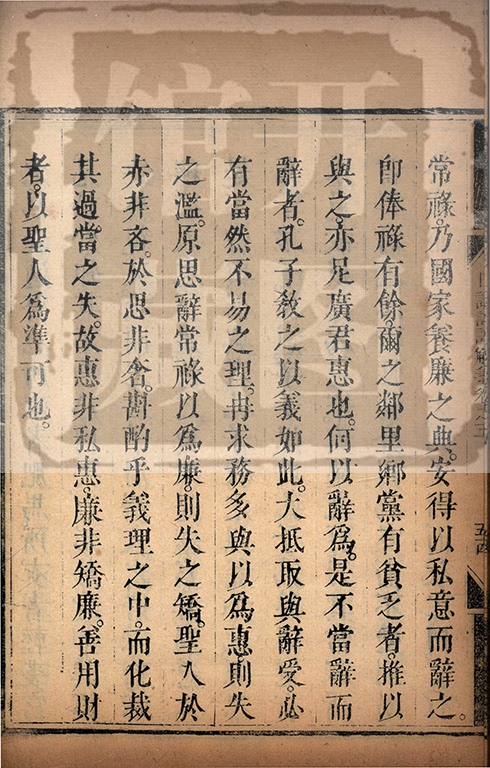 常祿乃國家養廉之典安得以私意而辭之
卽俸祿有餘爾之鄰里鄉黨有貧乏者推以
與之亦足廣君惠也何以辭爲是不當辭而
辭者孔子敎之以義如此大抵取與辭受必
有當然不易之理冉求務多與以爲惠則失
之濫原思辭常祿以爲廉則失之矯聖人於
赤非吝於思非奢斟酌乎義理之中而化裁
其過當之失故惠非私惠廉非矯廉善用財
者以聖人爲準可也